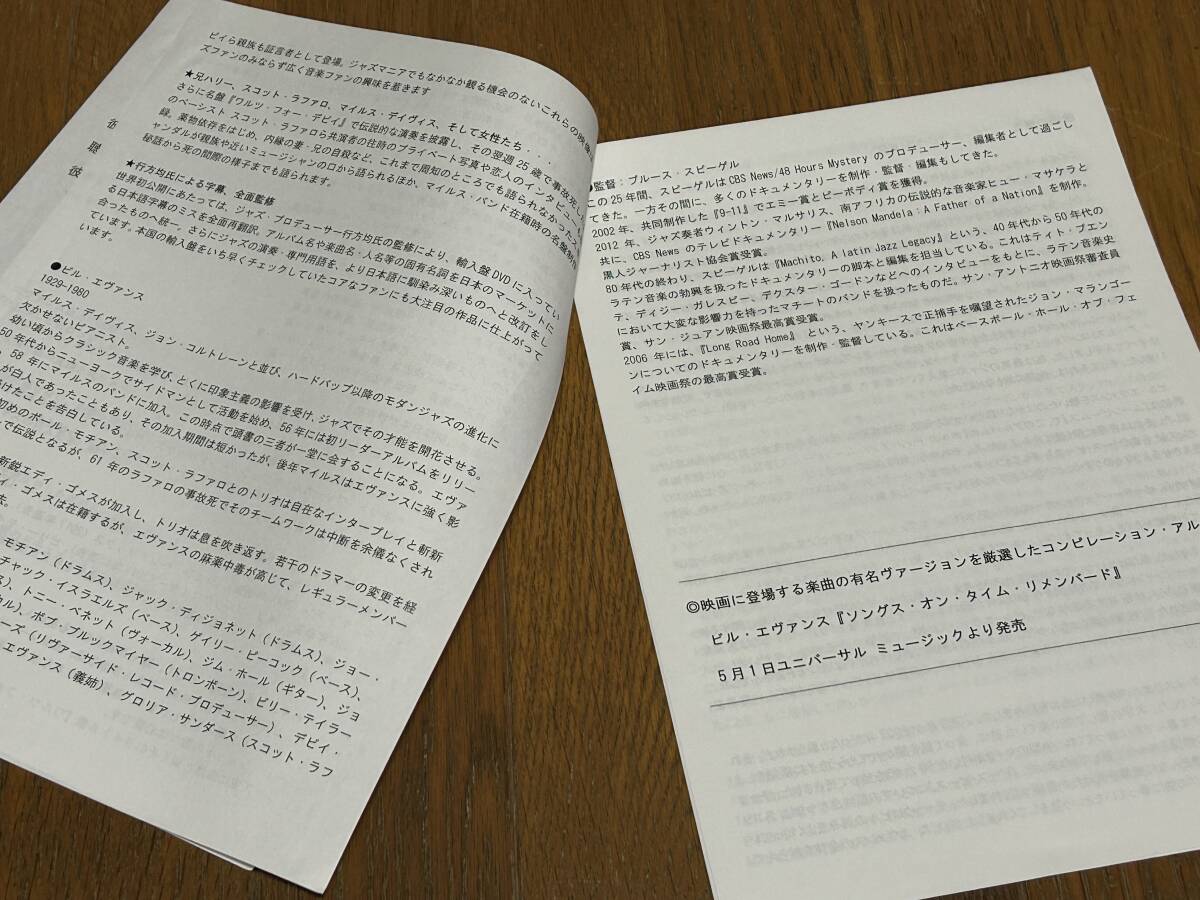 ビイら親族も証言者として登場。ジャズマニアでもなかなか観る機会のないこれらの映像
ズファンのみならず広く音楽ファンの興味を惹きます
★兄ハリー、スコット・ラファロ、マイルス・デイヴィス、そして女性たち・・・
さらに名盤『ワルツ・フォー・デビイ』で伝説的な演奏を披露し、その翌週 25 歳で事故死した
のベーシスト スコット・ラファロら共演者の往時のプライベート写真や恋人のインタビューも
録。薬物依存をはじめ、内縁の妻・兄の自殺など、これまで周知のところでも語られなかったス
ャンダルが親族や近いミュージシャンの口から語られるほか、マイルス・バンド在籍時の名盤制作
秘話から死の間際の様子までも語られます。
★行方均氏による字幕、全面監修
世界初公開にあたっては、ジャズ・プロデューサー行方均氏の監修により、輸入盤 DVD に入ってい
る日本語字幕のミスを全面再翻訳、アルバム名や楽曲名・人名等の固有名詞を日本のマーケットに
合ったものへ統一。さらにジャズの演奏・専門用語を、より日本語に馴染み深いものへと改訂をし
ています。本国の輸入盤をいち早くチェックしていたコアなファンにも大注目の作品に仕上がって
います。
●ビル・エヴァンス
1929-1980
マイルス・デイヴィス、ジョン・コルトレーンと並び、ハードバップ以降のモダンジャズの進化に
欠かせないピアニスト。
幼い頃からクラシック音楽を学び、とくに印象主義の影響を受け、ジャズでその才能を開花させる。
50 年代からニューヨークでサイドマンとして活動を始め、56 年には初リーダーアルバムをリリー
。58 年にマイルスのバンドに加入。この時点で頭書の三者が一堂に会することになる。エヴァ
が白人であったこともあり、その加入期間は短かったが、後年マイルスはエヴァンスに強く影
けたことを告白している。
初めのポール・モチアン、スコット・ラファロとのトリオは自在なインタープレイと斬新
で伝説となるが、61 年のラファロの事故死でそのチームワークは中断を余儀なくされ
新鋭エディ・ゴメスが加入し、トリオは息を吹き返す。若干のドラマーの変更を経
ィ・ゴメスは在籍するが、エヴァンスの麻薬中毒が高じて、レギュラーメンバー
去。
モチアン（ドラムス）、ジャック・ディジョネット（ドラムス）、ジョー・
チャック・イスラエルズ（ベース）、ゲイリー・ピーコック（ベース）、
ス）、トニー・ベネット（ヴォーカル）、ジム・ホール（ギター）、ジョ
カル）、ボブ・ブルックマイヤー（トロンボーン）、ビリー・テイラー
ーズ（リヴァーサイド・レコード・プロデューサー）、デビイ・
エヴァンス（義姉）、グロリア・サンダース（スコット・ラフ
●監督：ブルース・スピーゲル
この 25 年間、スピーゲルは CBS News/48 Hours Mystery のプロデューサー、編集者として過ごし
てきた。一方その間に、多くのドキュメンタリーを制作・監督・編集もしてきた。
2002 年、共同制作した『9-11』でエミー賞とピーボディ賞を獲得。
2012 年、ジャズ奏者ウィントン・マルサリス、南アフリカの伝説的な音楽家ヒュー・マサケラと
共に、CBS News のテレビドキュメンタリー『Nelson Mandela：A Father of a Nation』を制作。
黒人ジャーナリスト協会賞受賞。
80 年代の終わり、スピーゲルは『Machito. A latin Jazz Legacy』という、40 年代から 50 年代の
ラテン音楽の勃興を扱ったドキュメンタリーの脚本と編集を担当している。これはティト・プエン
テ、ディジー・ガレスピー、デクスター・ゴードンなどへのインタビューをもとに、ラテン音楽史
において大変な影響力を持ったマチートのバンドを扱ったものだ。サン・アントニオ映画祭審査員
賞、サン・ジュアン映画祭最高賞受賞。
2006 年には、『Long Road Home』 という、ヤンキースで正捕手を嘱望されたジョン・マランゴー
ンについてのドキュメンタリーを制作・監督している。これはベースボール・ホール・オブ・フェ
イム映画祭の最高賞受賞。
◎映画に登場する楽曲の有名ヴァージョンを厳選したコンピレーション・アル
ビル・エヴァンス『ソングス・オン・タイム・リメンバード』
5月1日ユニバーサル ミュージックより発売